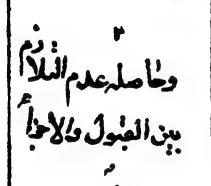 ٣
وحاصله عدم التلازم
بين القبول والاجزأ